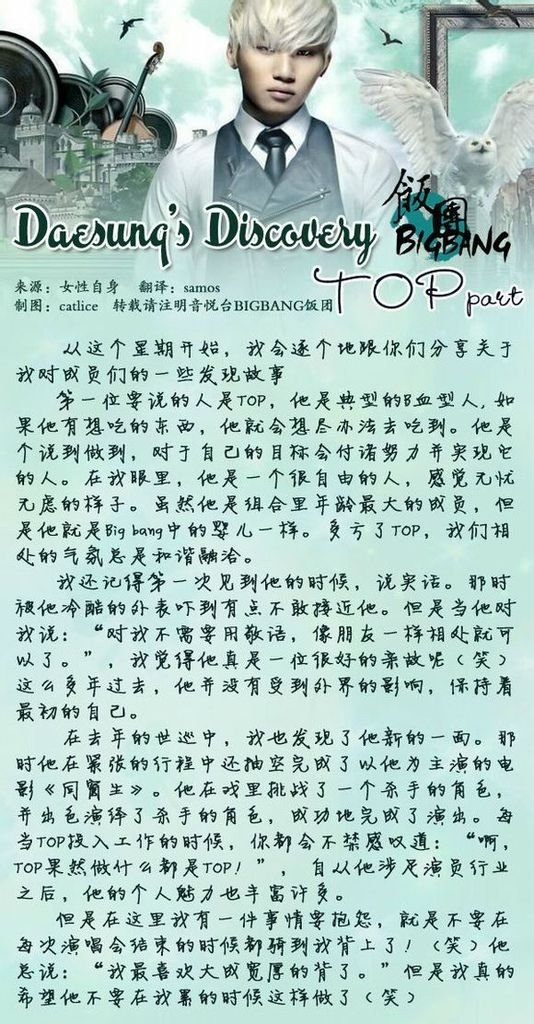 Daesung's Discovery
飯團
BIGBANG
TOP part
来源：女性自身 翻译：samos
制图：catlice 转载请注明音悦台BIGBANG饭团
从这个星期开始，我会逐个地跟你们分享关于
我对成员们的一些发现故事
第一位要说的人是TOP，他是典型的B血型人，如
果他有想吃的东西，他就会想尽办法去吃到。他是
个说到做到，对于自己的目标会付诸努力并实现它
的人。在我眼里，他是一个很自由的人，感觉无忧
无虑的样子。虽然他是组合里年龄最大的成员，但
是他就是Big bang中的婴儿一样。多亏了TOP，我们相
处的气氛总是和谐融洽。
我还记得第一次见到他的时候，说实话。那时
被他冷酷的外表吓到有点不敢接近他。但是当他对
我说：“对我不需要用敬语，像朋友一样相处就可
以了。”，我觉得他真是一位很好的亲故呢（笑）
这么多年过去，他并没有受到外界的影响，保持着
最初的自己。
在去年的世巡中，我也发现了他新的一面。那
时他在紧张的行程中还抽空完成了以他为主演的电
影《同窗生》。他在戏里挑战了一个杀手的角色，
并出色演绎了杀手的角色，成功地完成了演出。每
当TOP投入工作的时候，你都会不禁感叹道：“啊，
TOP果然做什么都是TOP！”，自从他涉足演员行业
之后，他的个人魅力也丰富许多。
但是在这里我有一件事情要抱怨，就是不要在
每次演唱会结束的时候都骑到我背上了！（笑）他
总说：“我最喜欢大成宽厚的背了。”但是我真的
希望他不要在我累的时候这样做了（笑）